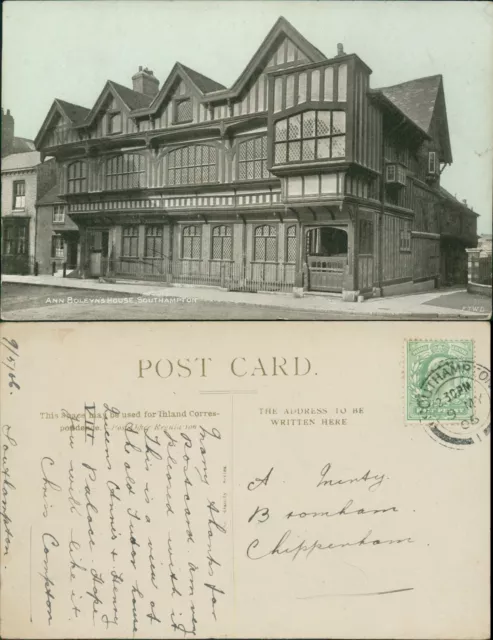 ANN BOLEYN'S HOUSE, SOUTHAMPTON
POST CARD.
This space may be used for Inland Corres-
pondence.
THE ADDRESS TO BE
WRITTEN HERE
SOUTHAMPTON
30PM
9 MY
06
1
9/5/06.
Southampton
Many thanks for
postcard am very
pleased with it
This is a view of
the old Tudor house
Queens Anne's & Henry
VIII Palace. Hope
you will like it
Chris Compton
A. Minty.
Bromham.
Chippenham.